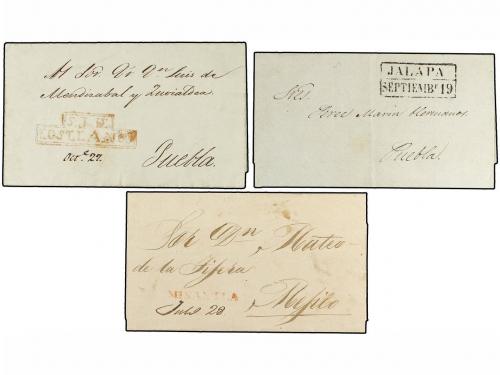 Al Sor. Dr. Dn. Luis de
Mendizabal y Zuvialdea
S. J. D.
COSTLAN
Oct.e 27.
Puebla.
JALAPA
SEPTIEMBE 19
Sres.
Marin Hermanos.
Puebla.
Sor Dn Mateo
de la Tijera
MISANTLA
Julio 28
Mejico